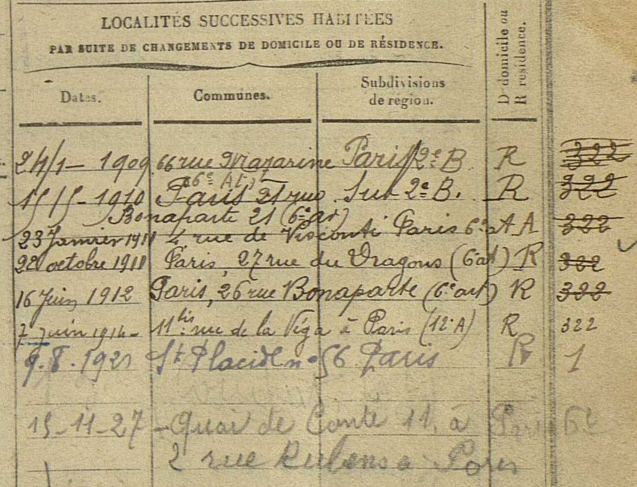 LOCALITÉS SUCCESSIVES HABITÉES
PAR SUITE DE CHANGEMENTS DE DOMICILE OU DE RÉSIDENCE.
Dates. Communes. Subdivisions de région. D domicile ou R résidence.
24/1 - 1909 66 rue Mazarine Paris 2e B R 322
6e Art
15/5 - 1910 Paris 21 rue Sub 2e B. R 322
Bonaparte 21 (6e art)
23 Janvier 1911 4 rue de Visconti Paris 6e A A 322
22 octobre 1911 Paris, 27 rue du Dragons (6e art) R 322
16 Juin 1912 Paris, 26 rue Bonaparte (6e art) R 322
7 Juin 1914 11 bis rue de la à Paris (12e A) R 322
9.8.1921 St Placide no 56 Paris R 1
15-11-27 - Quai de Conti 11, à Paris 6e
2 rue Rubens à Paris